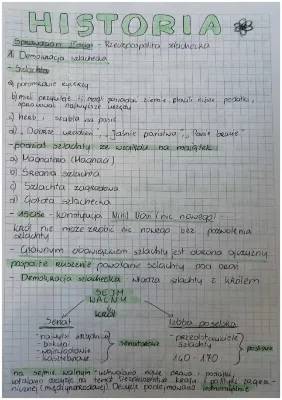 HISTORIA
Rzeczpospolita szlachecka
1. Demokracja szlachecka
- Szlachta
a) potomkowie rycerzy
b) mieli przywileje, tj. mogli posiadać ziemie, płacili niższe podatki,
najwyższe urzędy
c) herb, szabla na pasie
d) "Dobrze urodzeni", "Jaśnie państwo", "Panie bracie"
- podział szlachty ze względu na majątek:
a) Magnateria (Magnaci)
b) Średnia szlachta
c) Szlachta zagrodowa
d) Gołota szlachecka
- 1505r - konstytucja Nihil Novi (nic nowego)
król nie może zrobić nic nowego bez pozwolenia
szlachty
- Głównym obowiązkiem szlachty jest obrona ojczyzny
pospolite ruszenie powołanie szlachty pod broń
- Demokracja szlachecka władza szlachty z królem
SEJM
WALNY
król
Senat
Izba poselska
- biskupi
- wojewodowie
- kasztelanowie
senatorowie
- przedstawiciele
szlachty
140-170
posłowie
na sejmie walnym - uchwalano nowe prawa, podatki,
na temat bezpieczeństwa kraju i polityki zagra-
nicznej (międzynarodowej). Decyzje podejmowano jednomyślnie